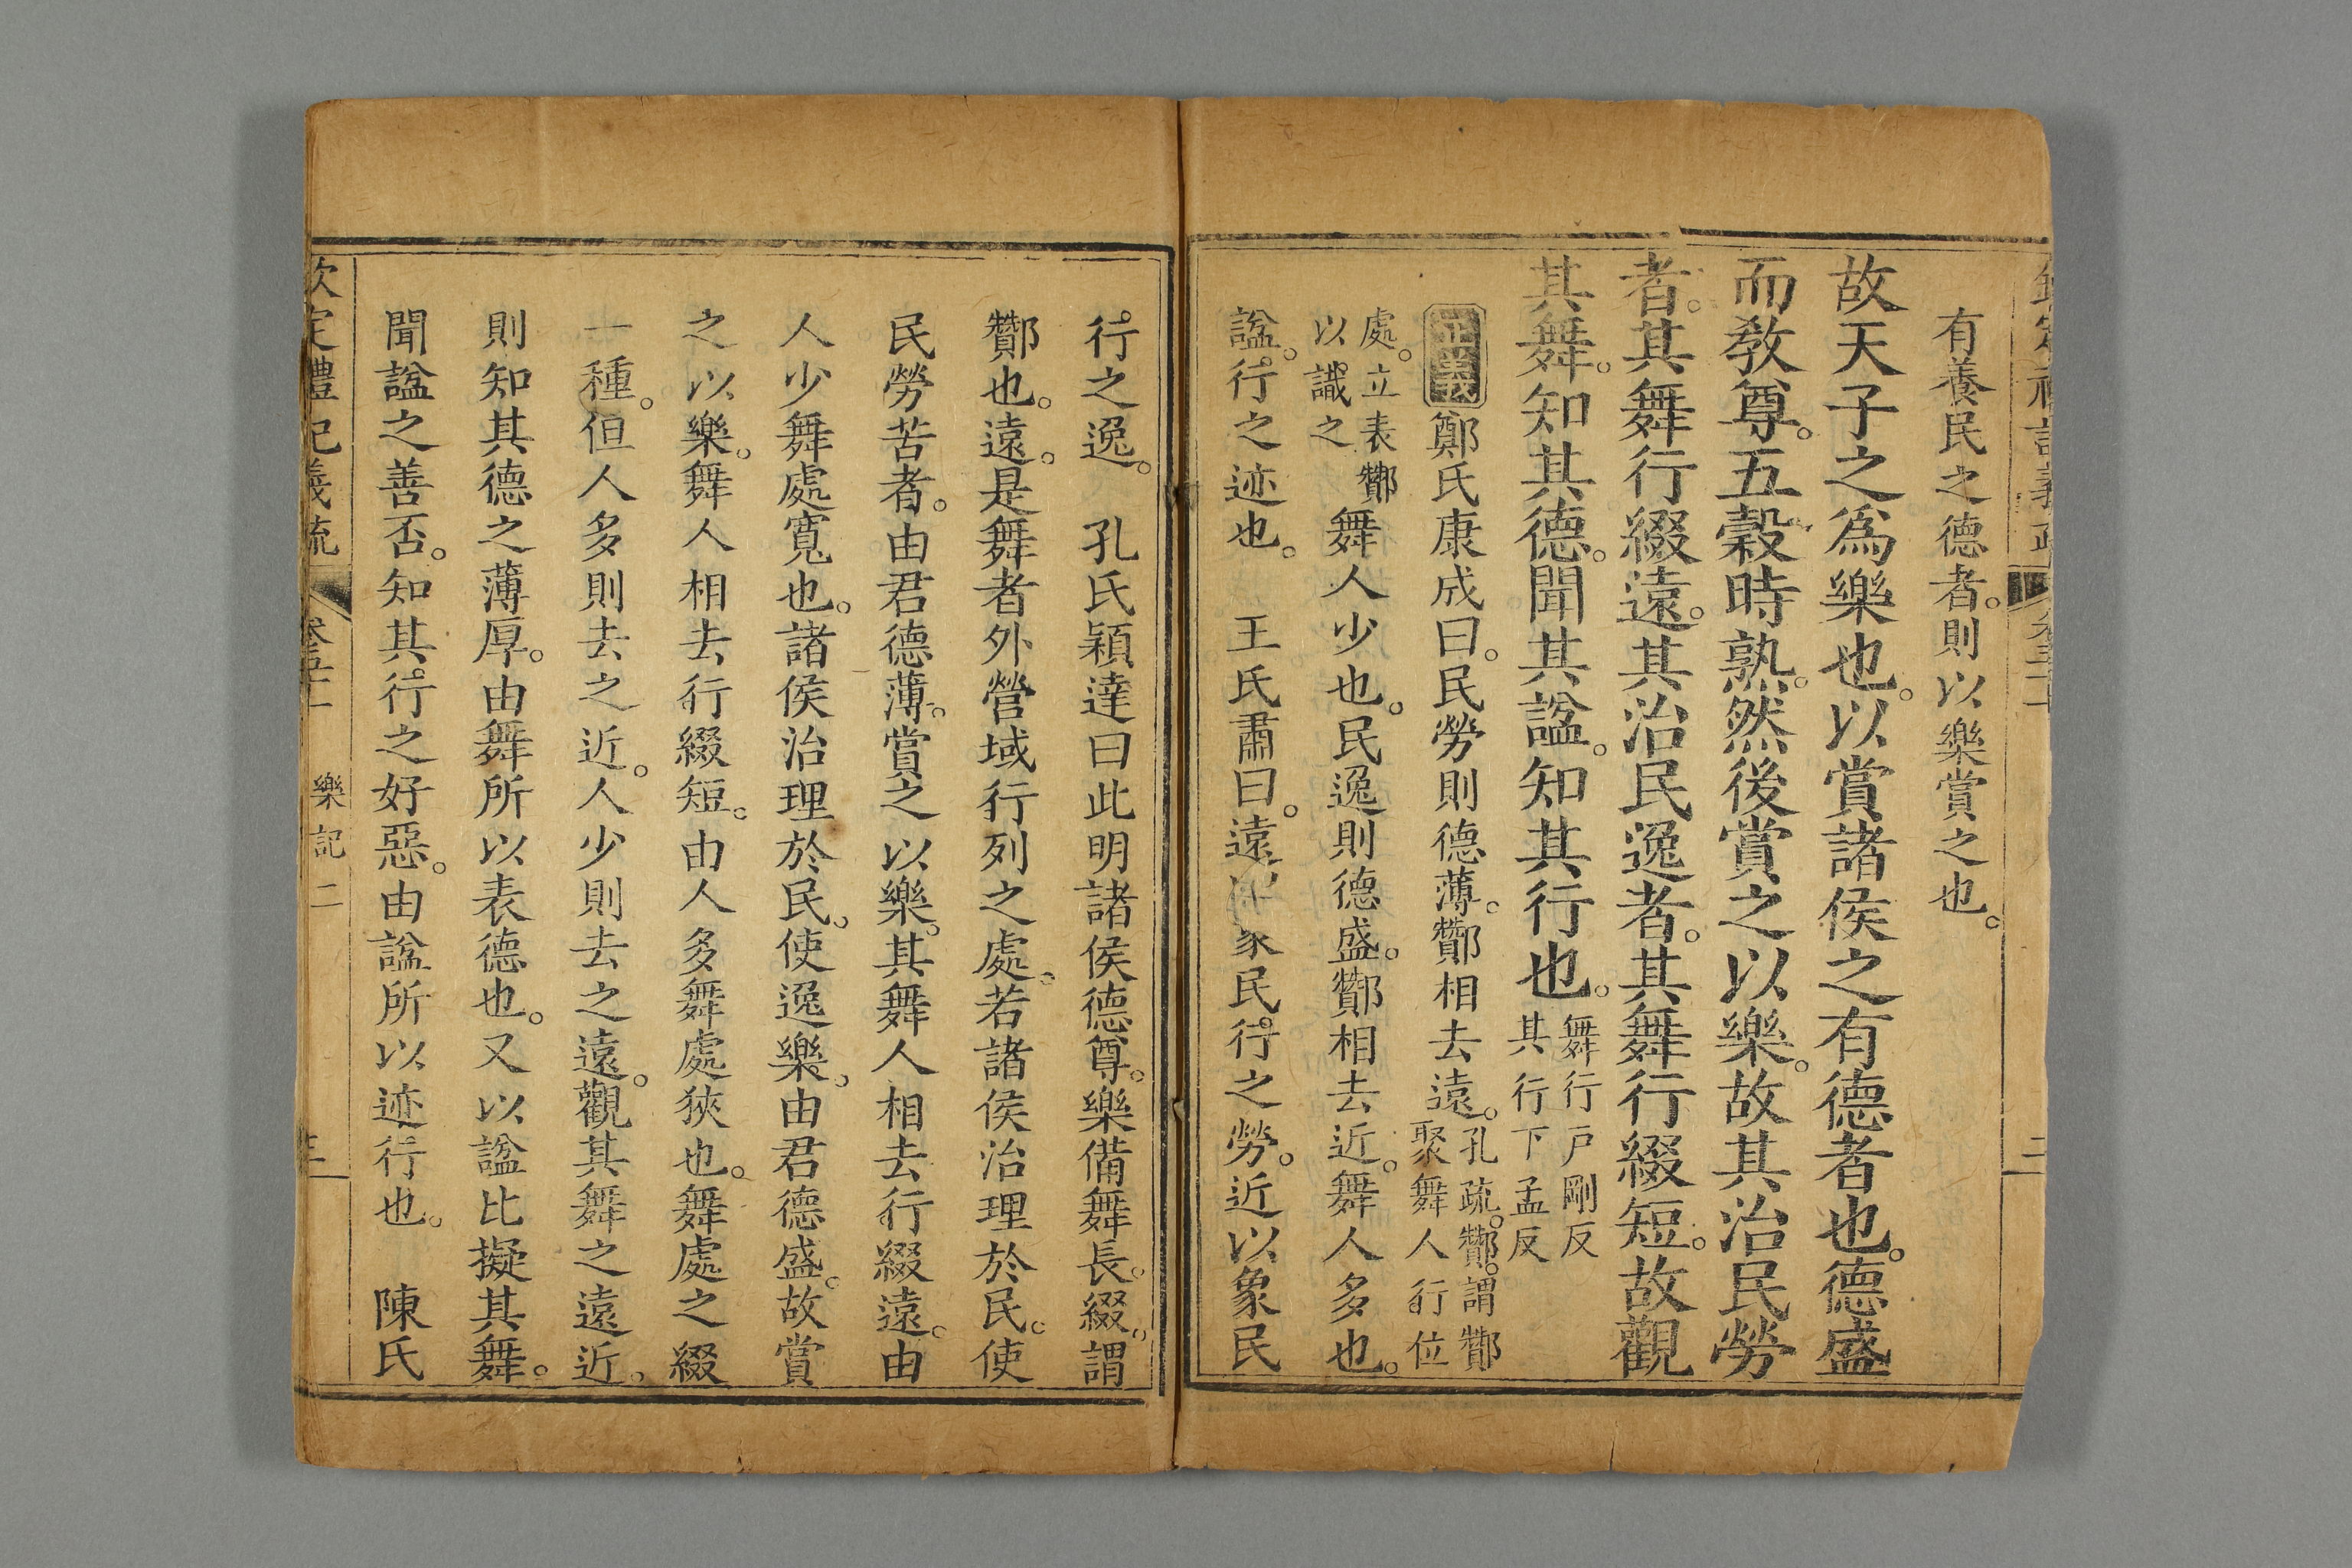 有養民之德者。則以樂賞之也。
故天子之爲樂也。以賞諸侯之有德者也。德盛
而敎尊。五穀時熟。然後賞之以樂。故其治民勞
者。其舞行綴遠。其治民逸者。其舞行綴短。故觀
其舞。知其德。聞其諡。知其行也。舞行戸剛反
其行下孟反
正義鄭氏康成曰。民勞則德薄。酇相去遠。孔疏。酇。謂酇
聚舞人行位
處。立表酇
以識之舞人少也。民逸則德盛。酇相去近。舞人多也。
諡。行之迹也。 王氏肅曰。遠以象民行之勞。近以象民
行之逸。 孔氏穎達曰此明諸侯德尊。樂備舞長。綴。謂
酇也。遠。是舞者外營域行列之處。若諸侯治理於民。使
民勞苦者。由君德薄。賞之以樂。其舞人相去行綴遠。由
人少舞處寬也。諸侯治理於民。使逸樂。由君德盛。故賞
之以樂。舞人相去行綴短。由人多舞處狹也。舞處之綴
一種。但人多則去之近。人少則去之遠。觀其舞之遠近。
則知其德之薄厚。由舞所以表德也。又以諡比擬其舞。
聞諡之善否。知其行之好惡。由諡所以迹行也。 陳氏
欽定禮記義疏 卷五十一 樂記二 三